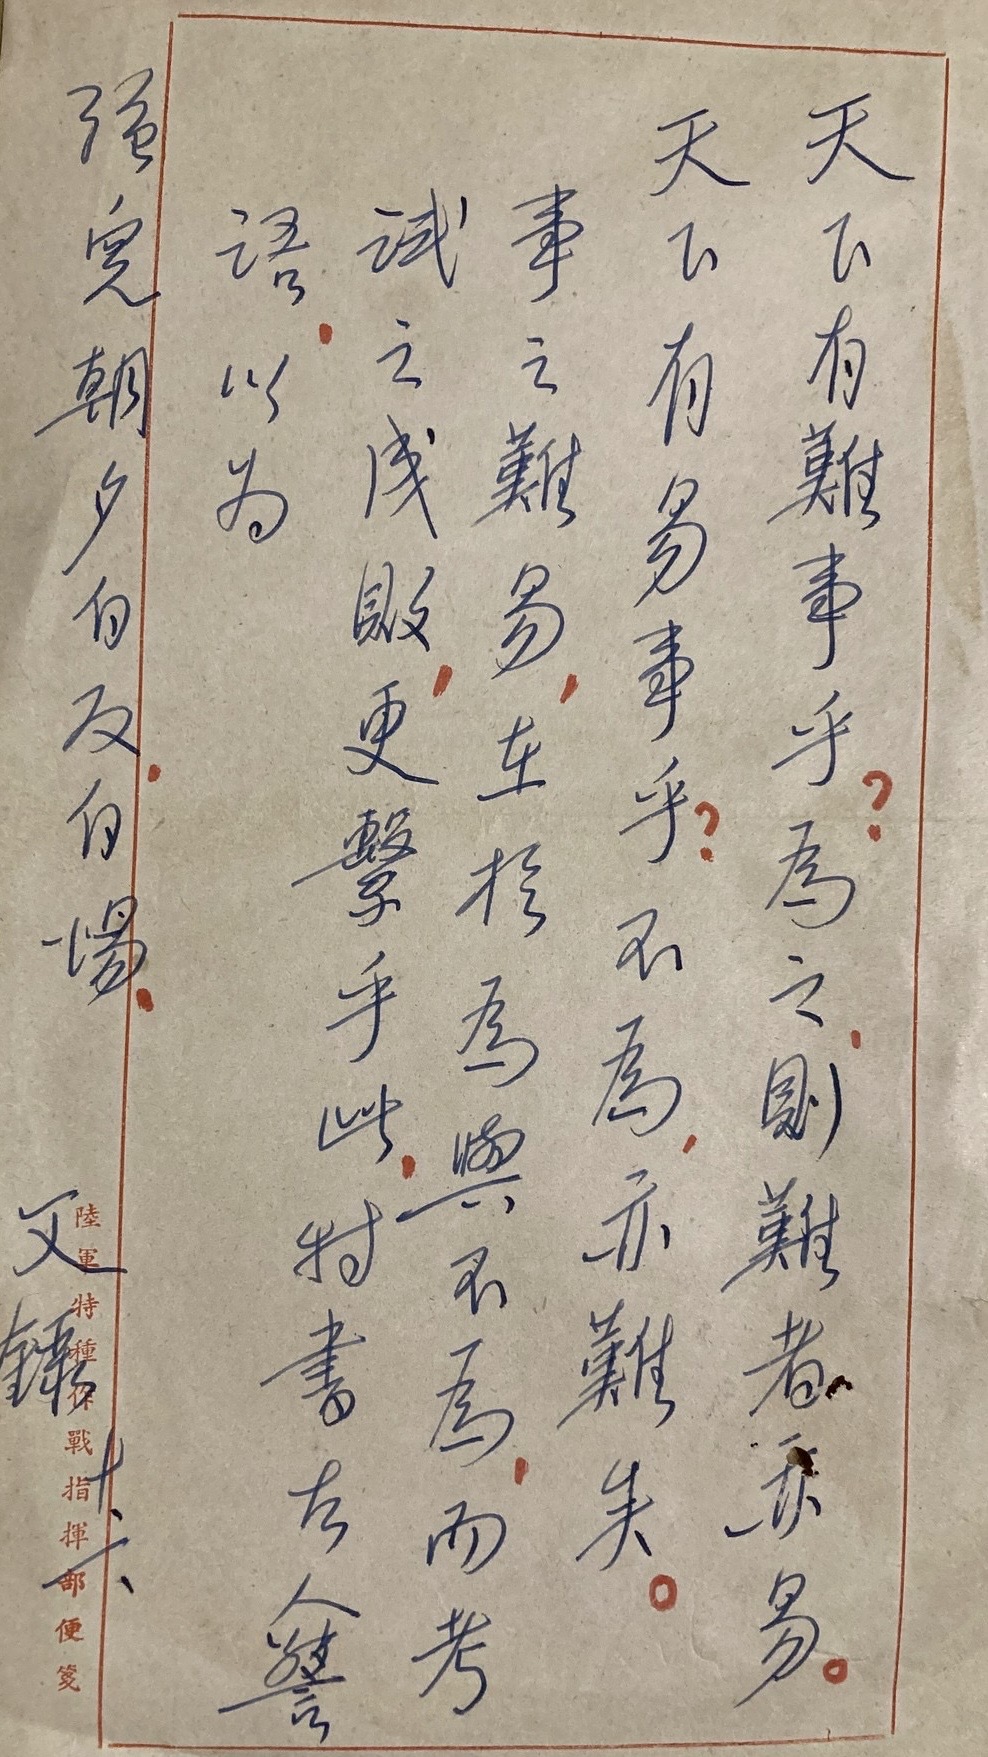 天下有難事乎?為之,則難者亦易。
天下有易事乎?不為,亦難矣。
事之難易,在於為與不為,而考
試之成敗,更繫乎此,特書古人警
語.以為
強兒朝夕自反.自惕.
父 十二、
陸軍特種作戰指揮部便箋